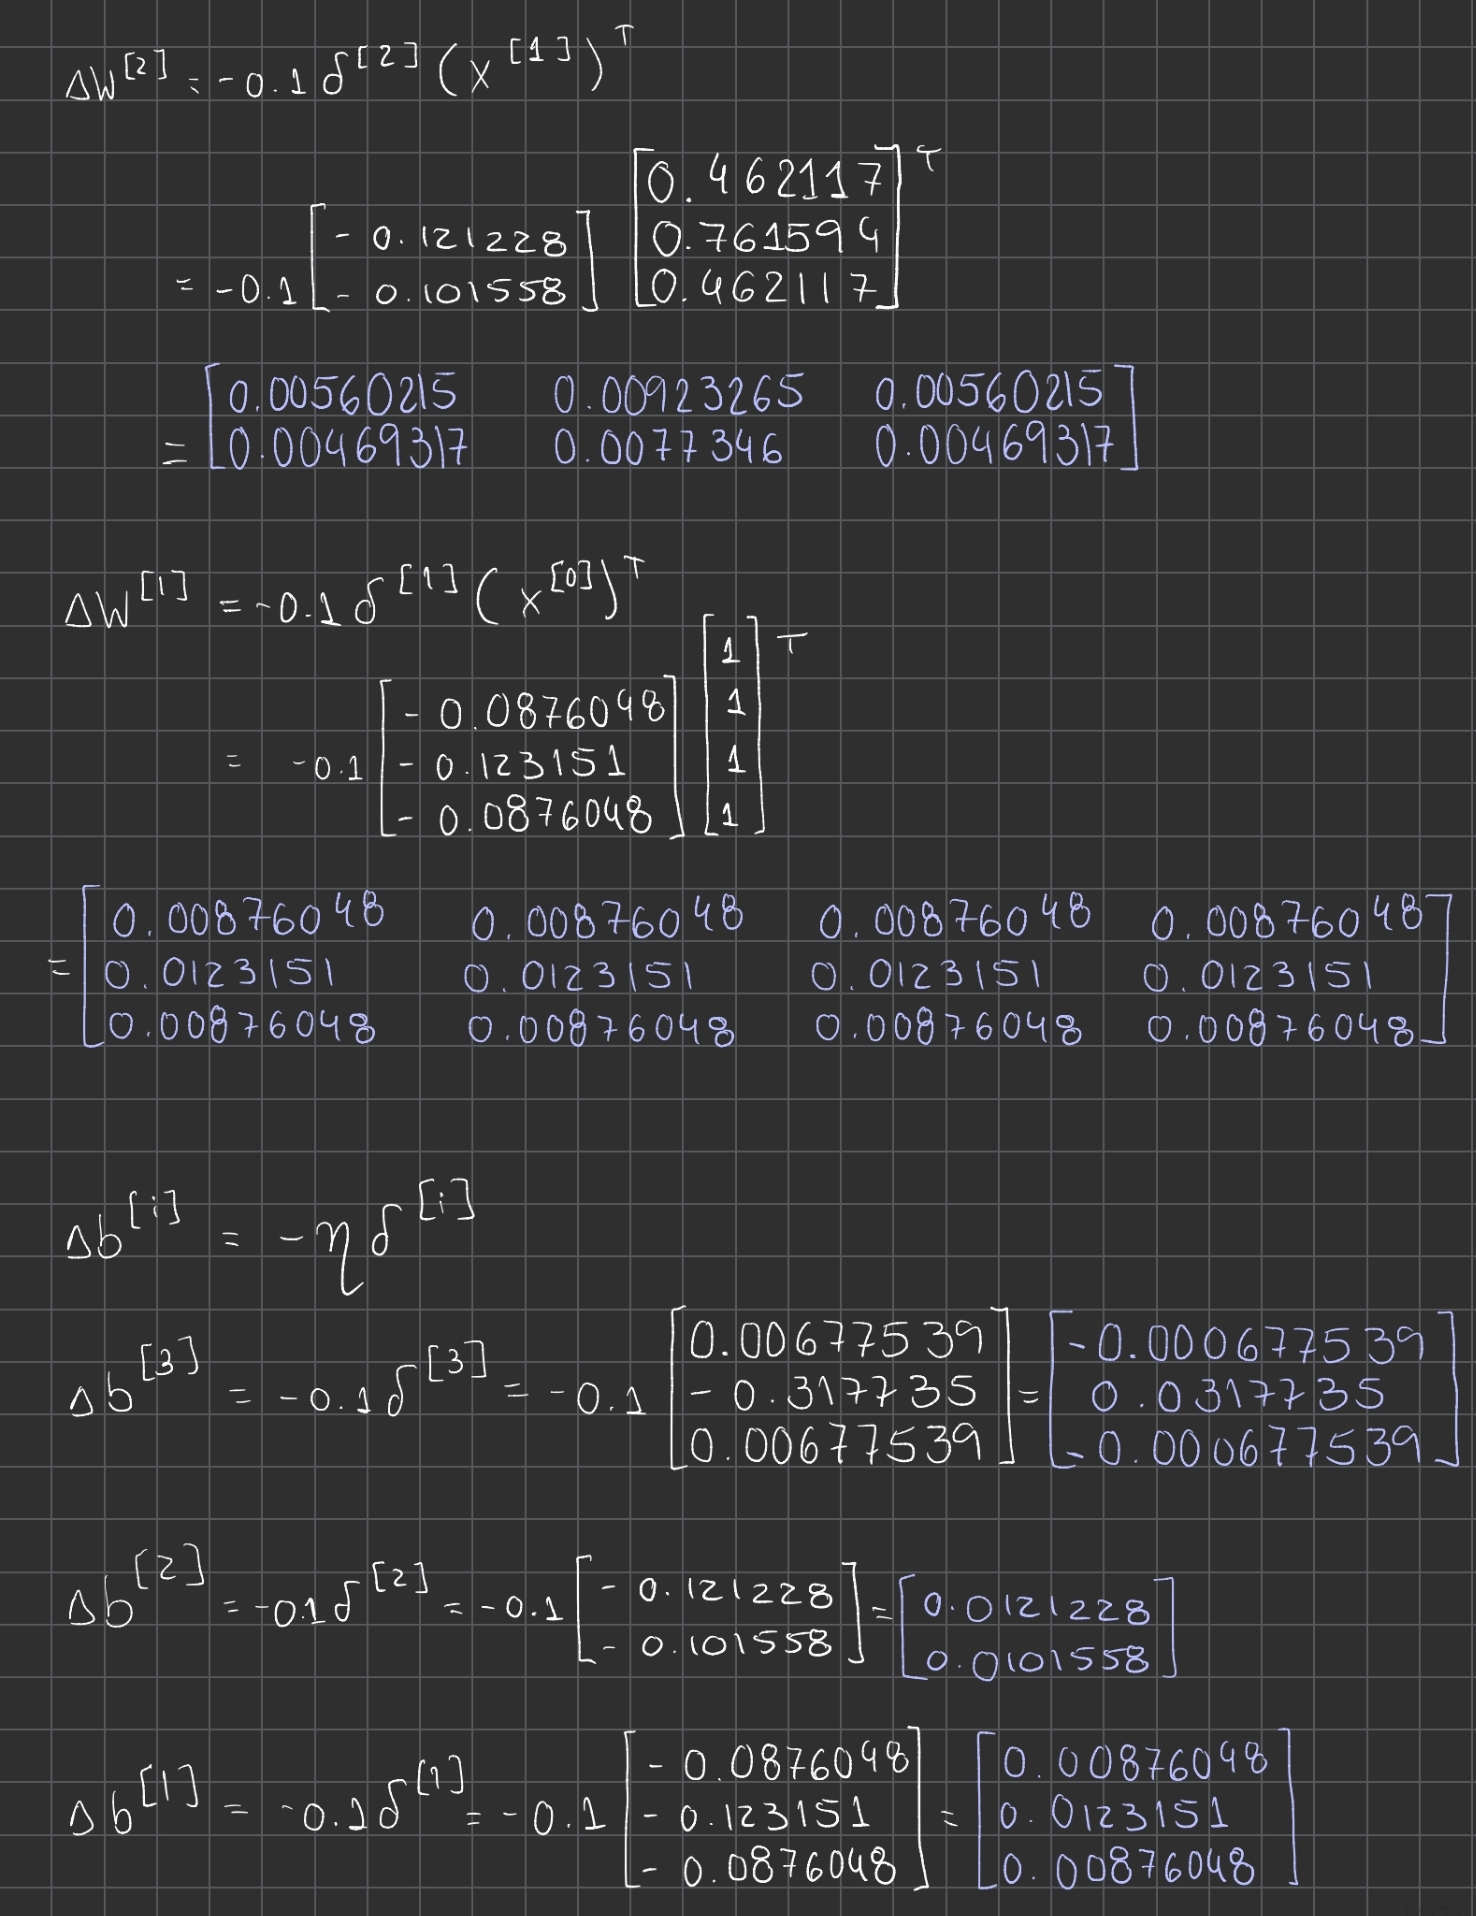 ΔW^[2] = -0.1 δ^[2] (x^[1])^T
= -0.1 [-0.121228; -0.101558] [0.462117; 0.761594; 0.462117]^T
= [0.00560215 0.00923265 0.00560215; 0.00469317 0.0077346 0.00469317]
ΔW^[1] = -0.1 δ^[1] (x^[0])^T
= -0.1 [-0.0876048; -0.123151; -0.0876048] [1; 1; 1; 1]^T
= [0.00876048 0.00876048 0.00876048 0.00876048; 0.0123151 0.0123151 0.0123151 0.0123151; 0.00876048 0.00876048 0.00876048 0.00876048]
Δb^[i] = -η δ^[i]
Δb^[3] = -0.1 δ^[3] = -0.1 [0.00677539; -0.317735; 0.00677539] = [-0.000677539; 0.0317735; -0.000677539]
Δb^[2] = -0.1 δ^[2] = -0.1 [-0.121228; -0.101558] = [0.0121228; 0.0101558]
Δb^[1] = -0.1 δ^[1] = -0.1 [-0.0876048; -0.123151; -0.0876048] = [0.00876048; 0.0123151; 0.00876048]